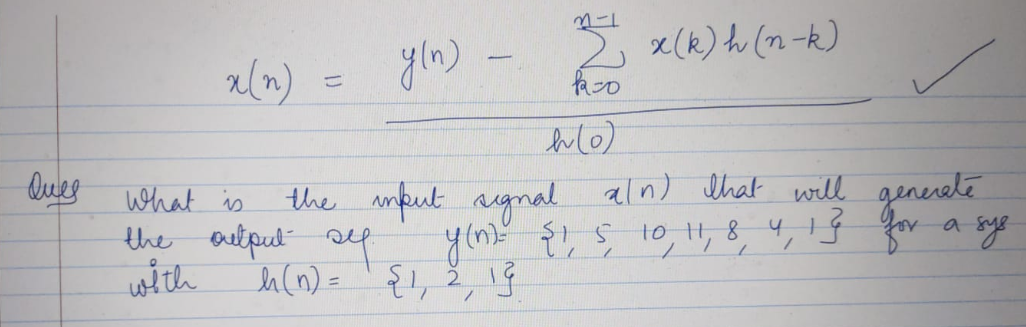 x(n) = y(n) - n-1 Σ k=0 x(k) h(n-k)
h(0)
Ques What is the input signal x(n) that will generate
the output seq y(n)= {1, 5, 10, 11, 8, 4, 1} for a sys
with h(n) = {1, 2, 1}